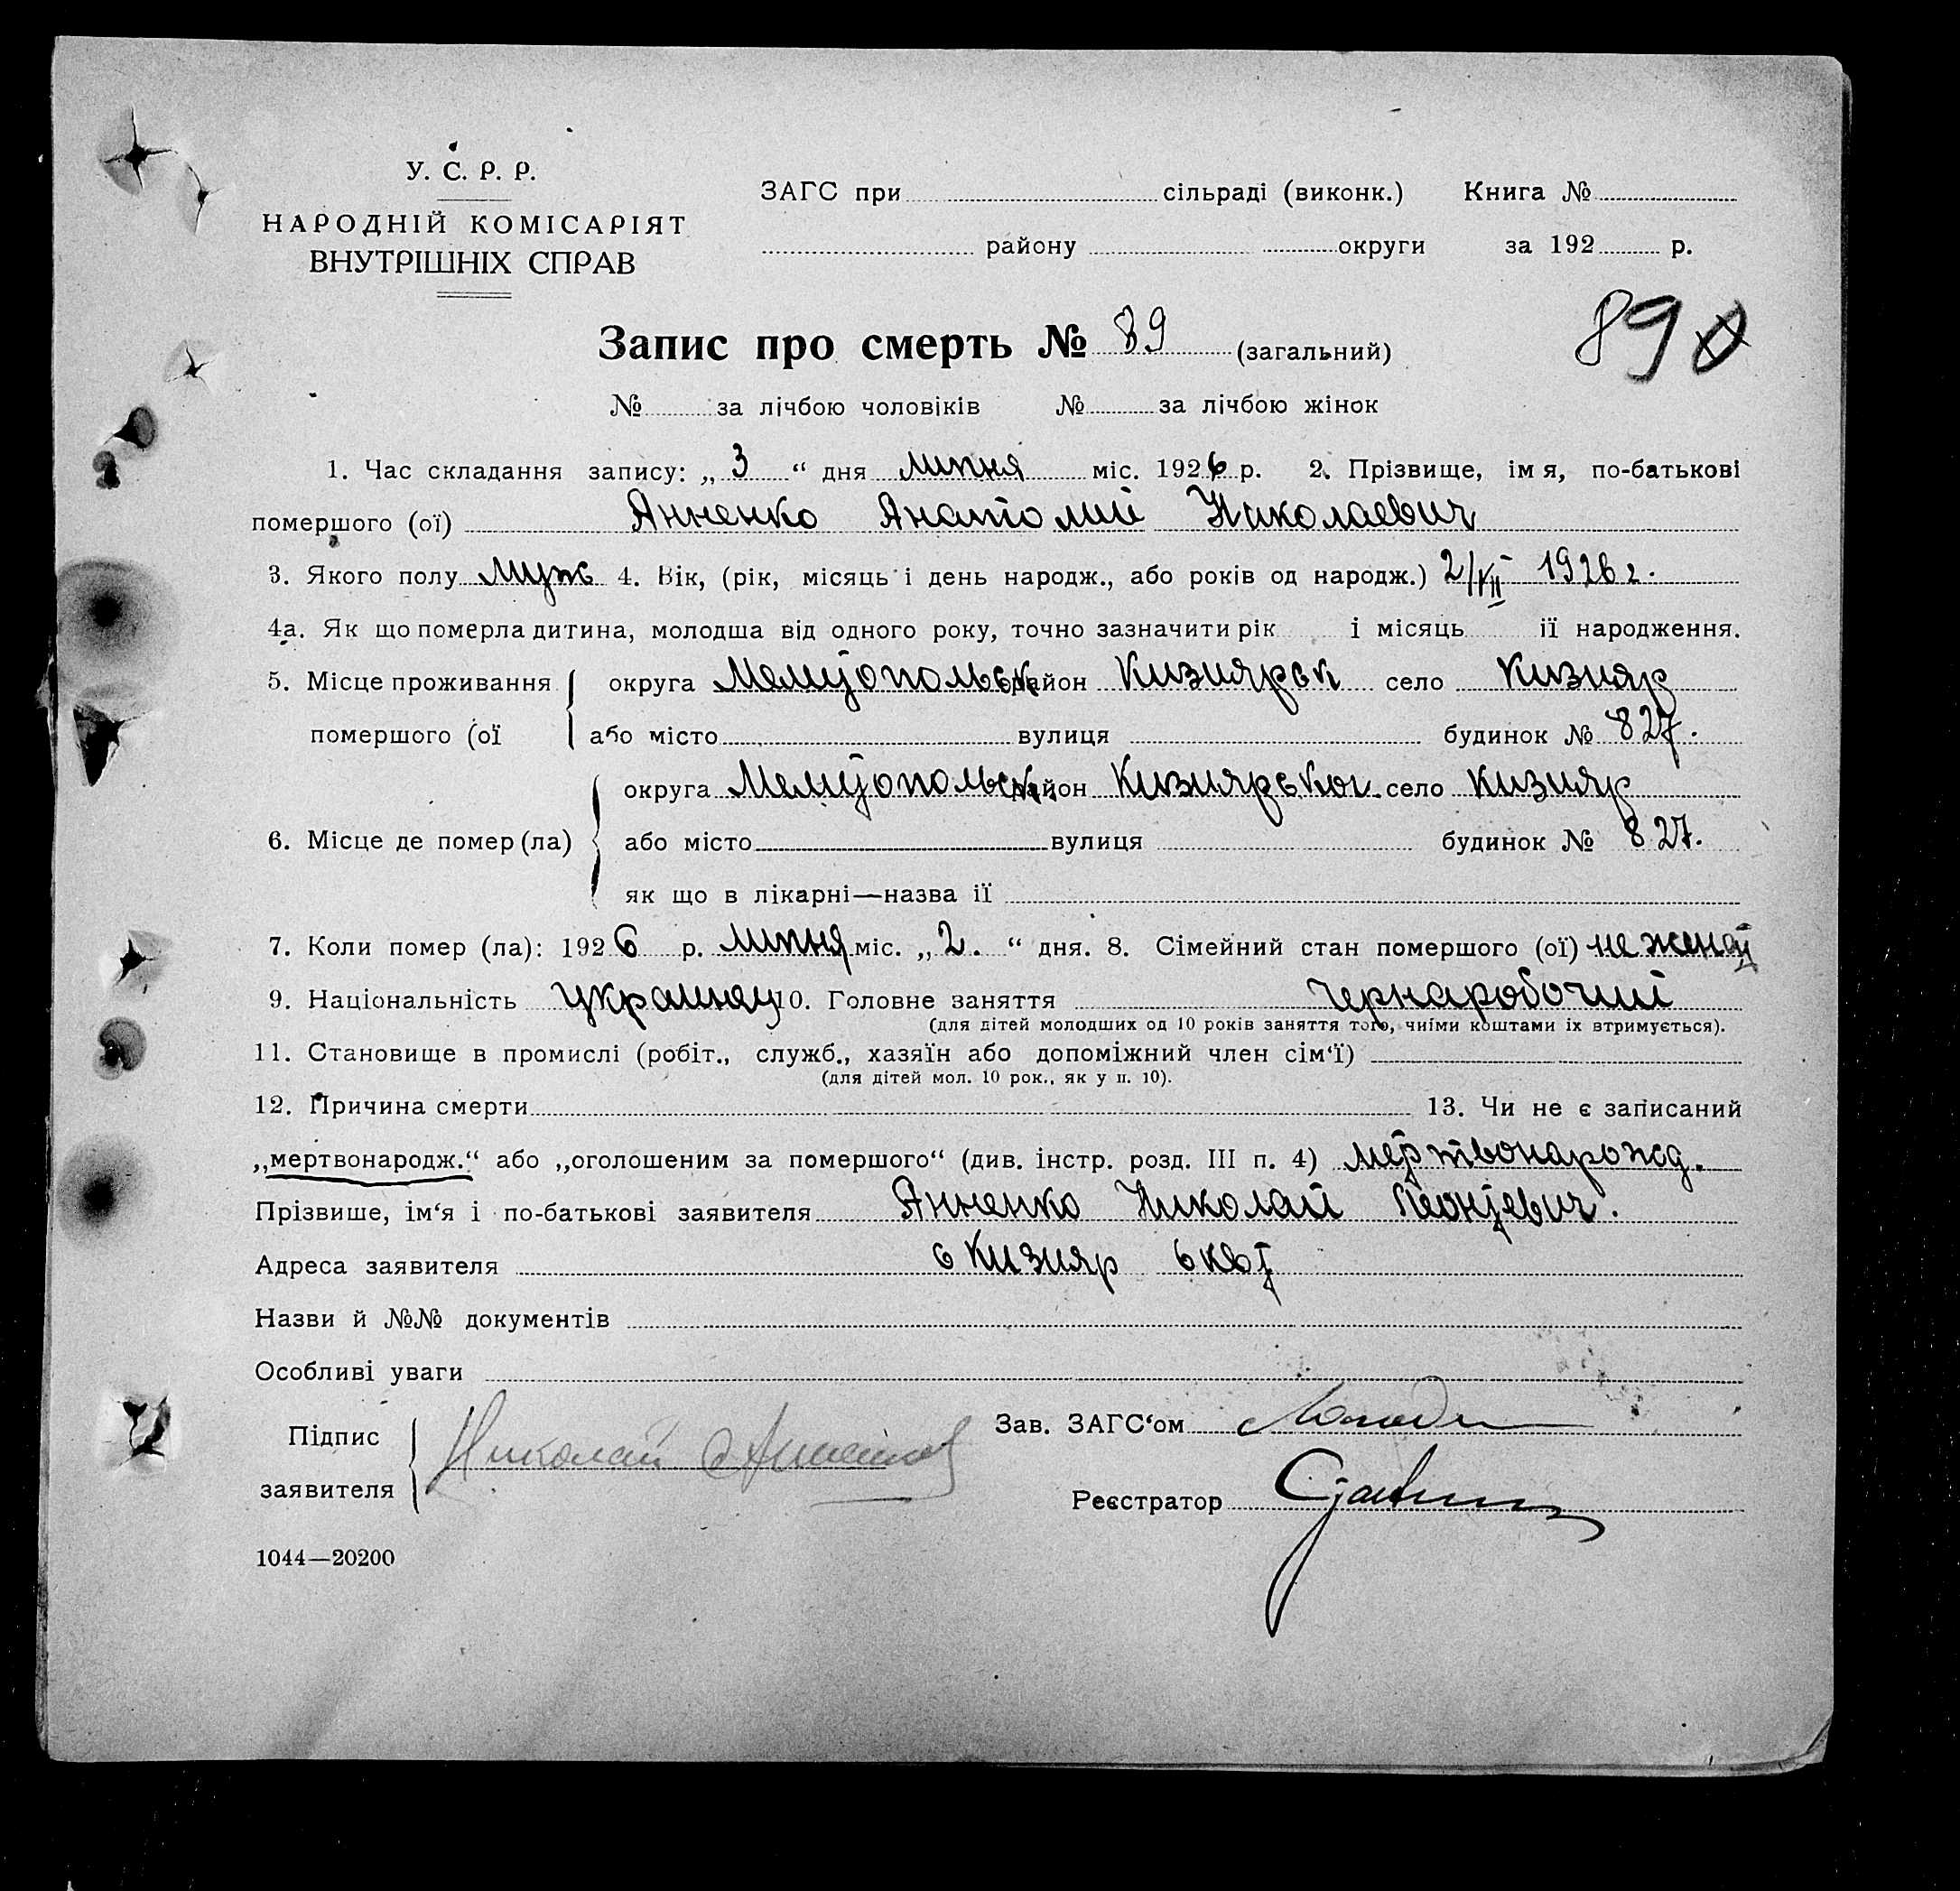 У. С. Р. Р.
НАРОДНІЙ КОМІСАРІЯТ
ВНУТРІШНІХ СПРАВ
ЗАГС при сільраді (виконк.) Книга №
району округи за 192 р.
Запис про смерть № 89 (загальний) 890
№ за лічбою чоловіків № за лічбою жінок
1. Час складання запису: „3“ дня липня міс. 1926 р. 2. Прізвище, імя, по-батькові
помершого (ої) Анненко Анатолий Николаевич
3. Якого полу муж 4. Вік, (рік, місяць і день народж., або років од народж.) 2/VII 1926 г.
4а. Як що померла дитина, молодша від одного року, точно зазначити рік і місяць її народження.
5. Місце проживання округа Мелитопольск район Кизиярск село Кизияр
помершого (ої або місто вулиця будинок № 827.
округа Мелитопольск. район Кизиярськог село Кизияр
6. Місце де помер (ла) або місто вулиця будинок № 827.
як що в лікарні—назва її
7. Коли помер (ла): 1926 р. липня міс. „2.“ дня. 8. Сімейний стан помершого (ої) не женат
9. Національність украинец 10. Головне заняття чернаробочий
(для дітей молодших од 10 років заняття того, чиїми коштами їх втримується).
11. Становище в промислі (робіт., служб., хазяїн або допоміжний член сім‘ї)
(для дітей мол. 10 рок., як у п. 10).
12. Причина смерти 13. Чи не є записаний
„мертвонародж.“ або „оголошеним за помершого“ (див. інстр. розд. III п. 4) мертвонарожд.
Прізвише, ім‘я і по-батькові заявителя Анненко Николай Леонтевич.
Адреса заявителя с Кизияр 6 кв
Назви й №№ документів
Особливі уваги
Підпис Николай Анненко Зав. ЗАГС‘ом
заявителя Реєстратор
1044—20200